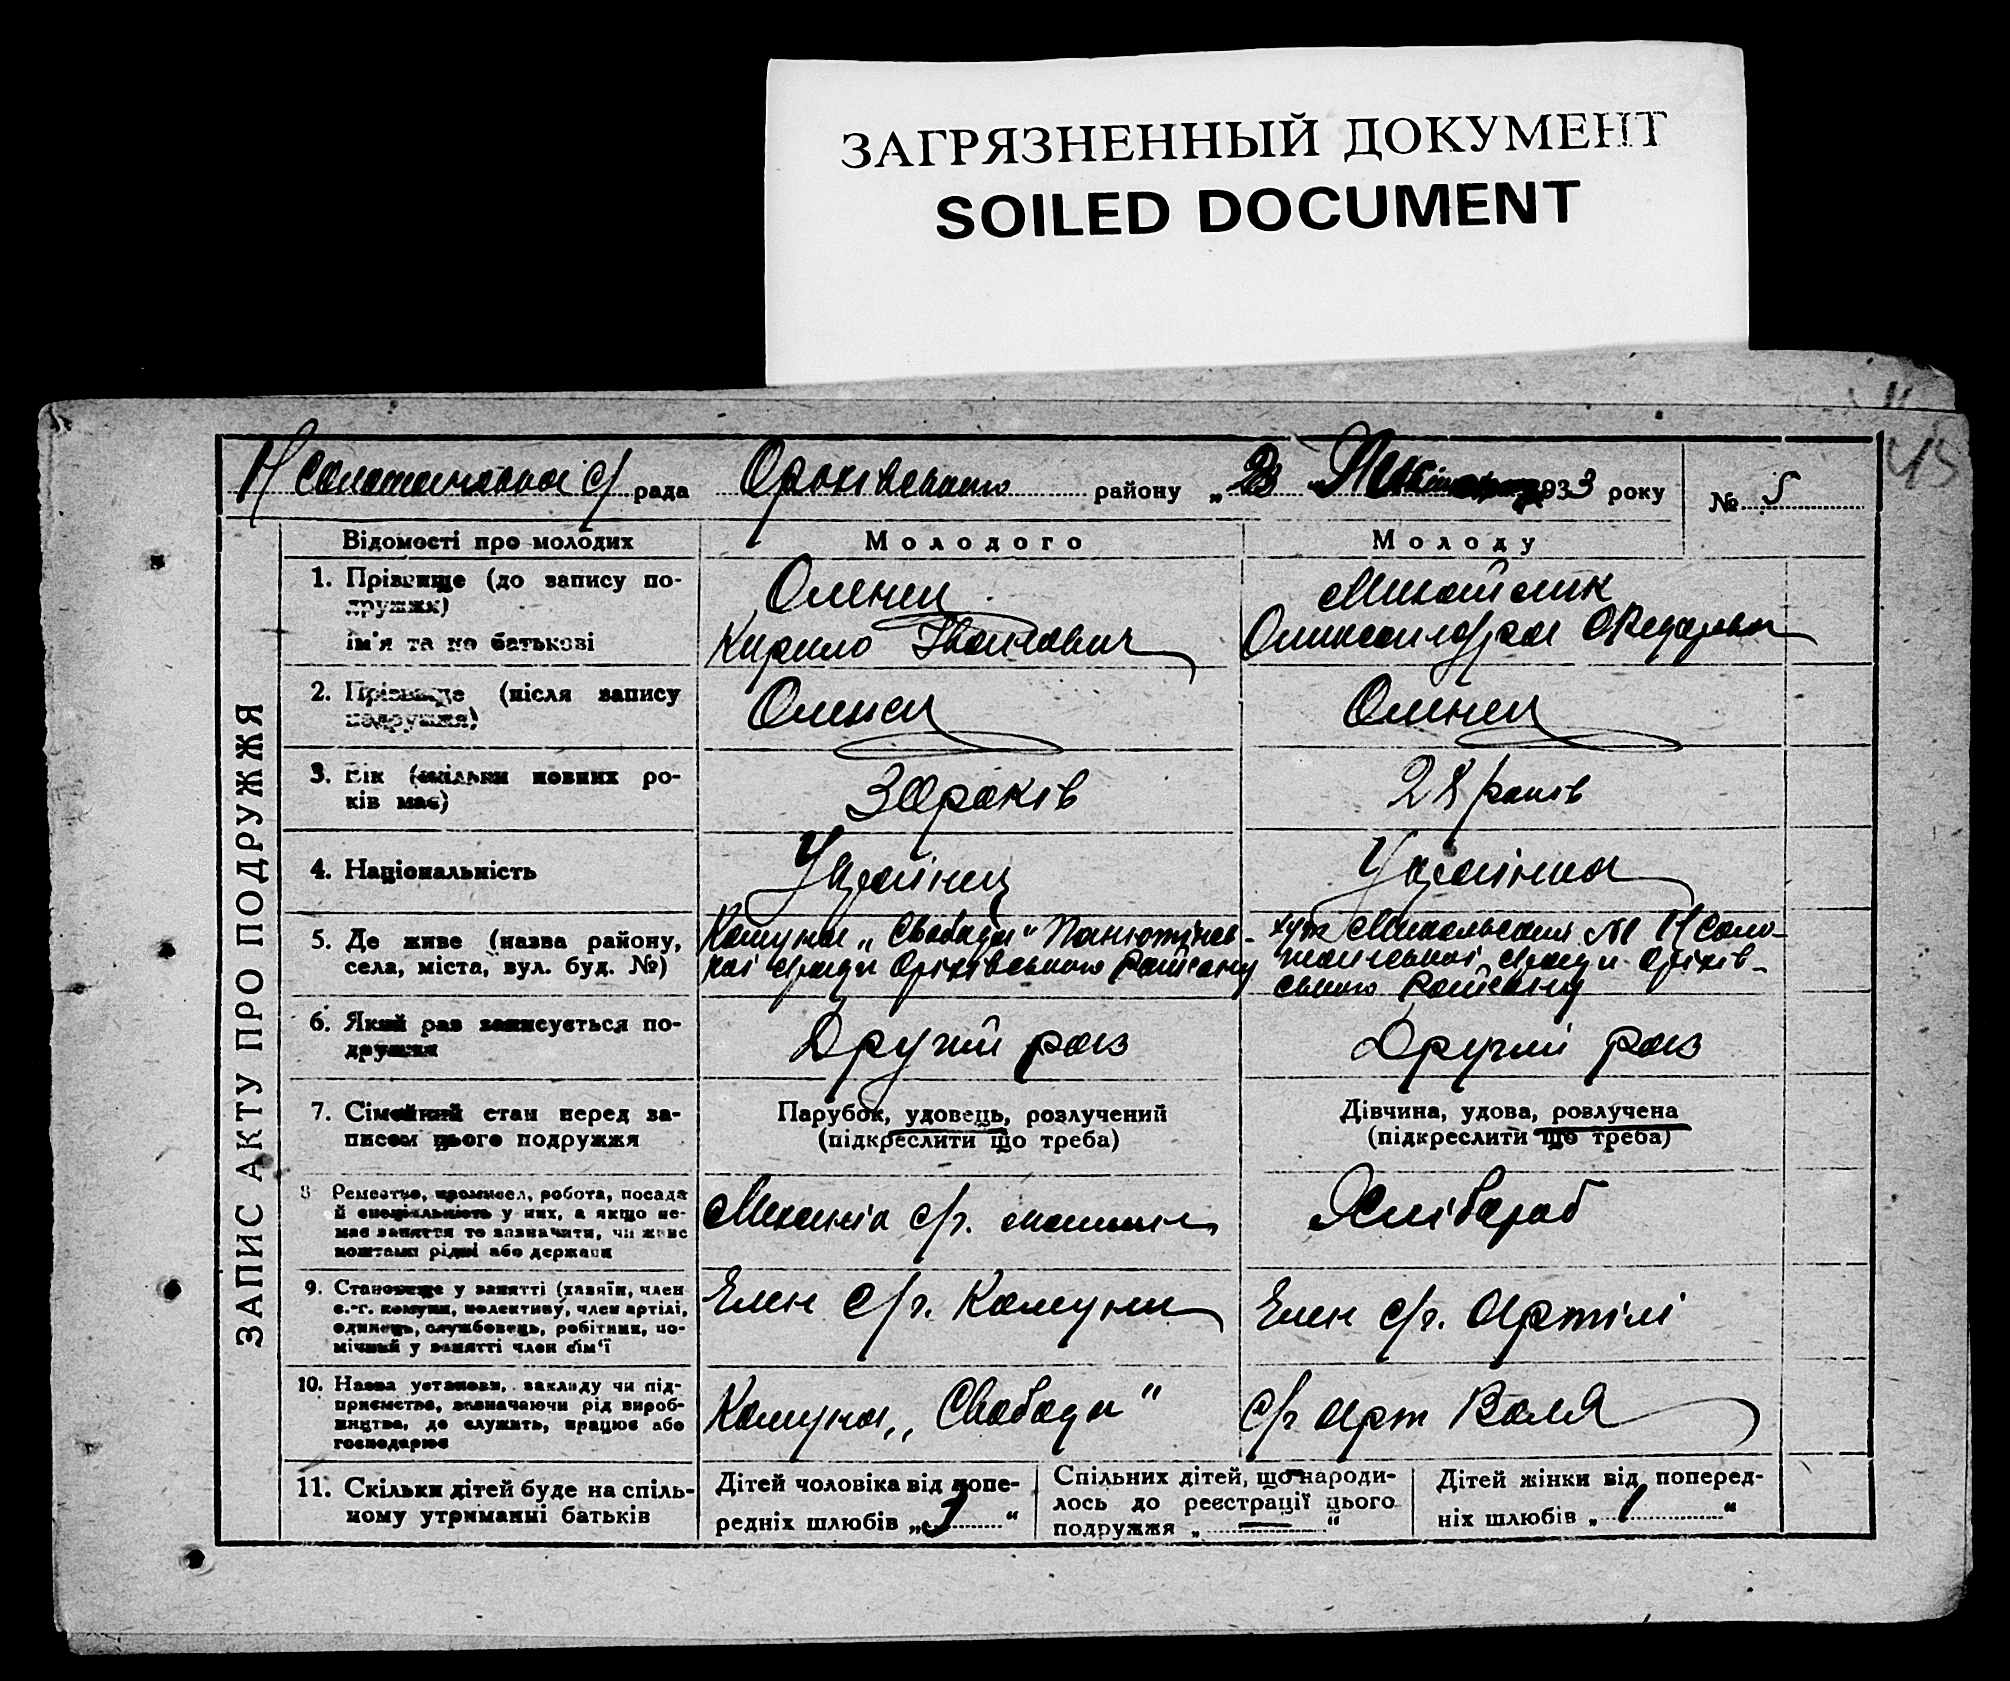 ЗАГРЯЗНЕННЫЙ ДОКУМЕНТ
SOILED DOCUMENT
45
с/рада Оріхівського району „ 23 1933 року
№ 5
ЗАПИС АКТУ ПРО ПОДРУЖЖЯ
Відомості про молодих Молодого Молоду
1. Прізвище (до запису по-
дружжя)
Ім'я та по батькові
Оленец
Кирило Іванович
Олександра
2. Прізвище (після запису
подружжя)
Оленец
Оленец
3. Вік (скільки повних ро-
ків має)
30 років
28 років
4. Національність
Українец
Українка
5. Де живе (назва району,
села, міста, вул. буд. №)
Комуна „Свобода"
с/ради Оріхівського Району
хут
с/ради Оріхів-
ського Району
6. Який раз записується по-
дружжя
Другий раз
Другий раз
7. Сімейний стан перед за-
писом цього подружжя
Парубок, удовець, розлучений
(підкреслити що треба)
Дівчина, удова, розлучена
(підкреслити що треба)
8 Ремество, промисел, робота, посада
й спеціяльність у них, а якщо не-
має заняття то зазначити, чи живе
коштами рідні або держави
Механік с/г. машин
Хлібороб
9. Становище у занятті (хазяїн, член
с.-г. комуни, колективу, член артілі,
одинець, службовець, робітник, по-
мічний у занятті член сім'ї
Член с/г. Комуни
Член с/г. Артілі
10. Назва установи, закладу чи під-
приємства, зазначаючи рід вироб-
ництва, де служить, працює або
господарює
Комуна „Свобода"
с/г арт Воля
11. Скільки дітей буде на спіль-
ному утриманні батьків
Дітей чоловіка від попе-
редніх шлюбів „ 3 "
Спільних дітей, що народи-
лось до реєстрації цього
подружжя „ — "
Дітей жінки від поперед-
ніх шлюбів „ 1 "